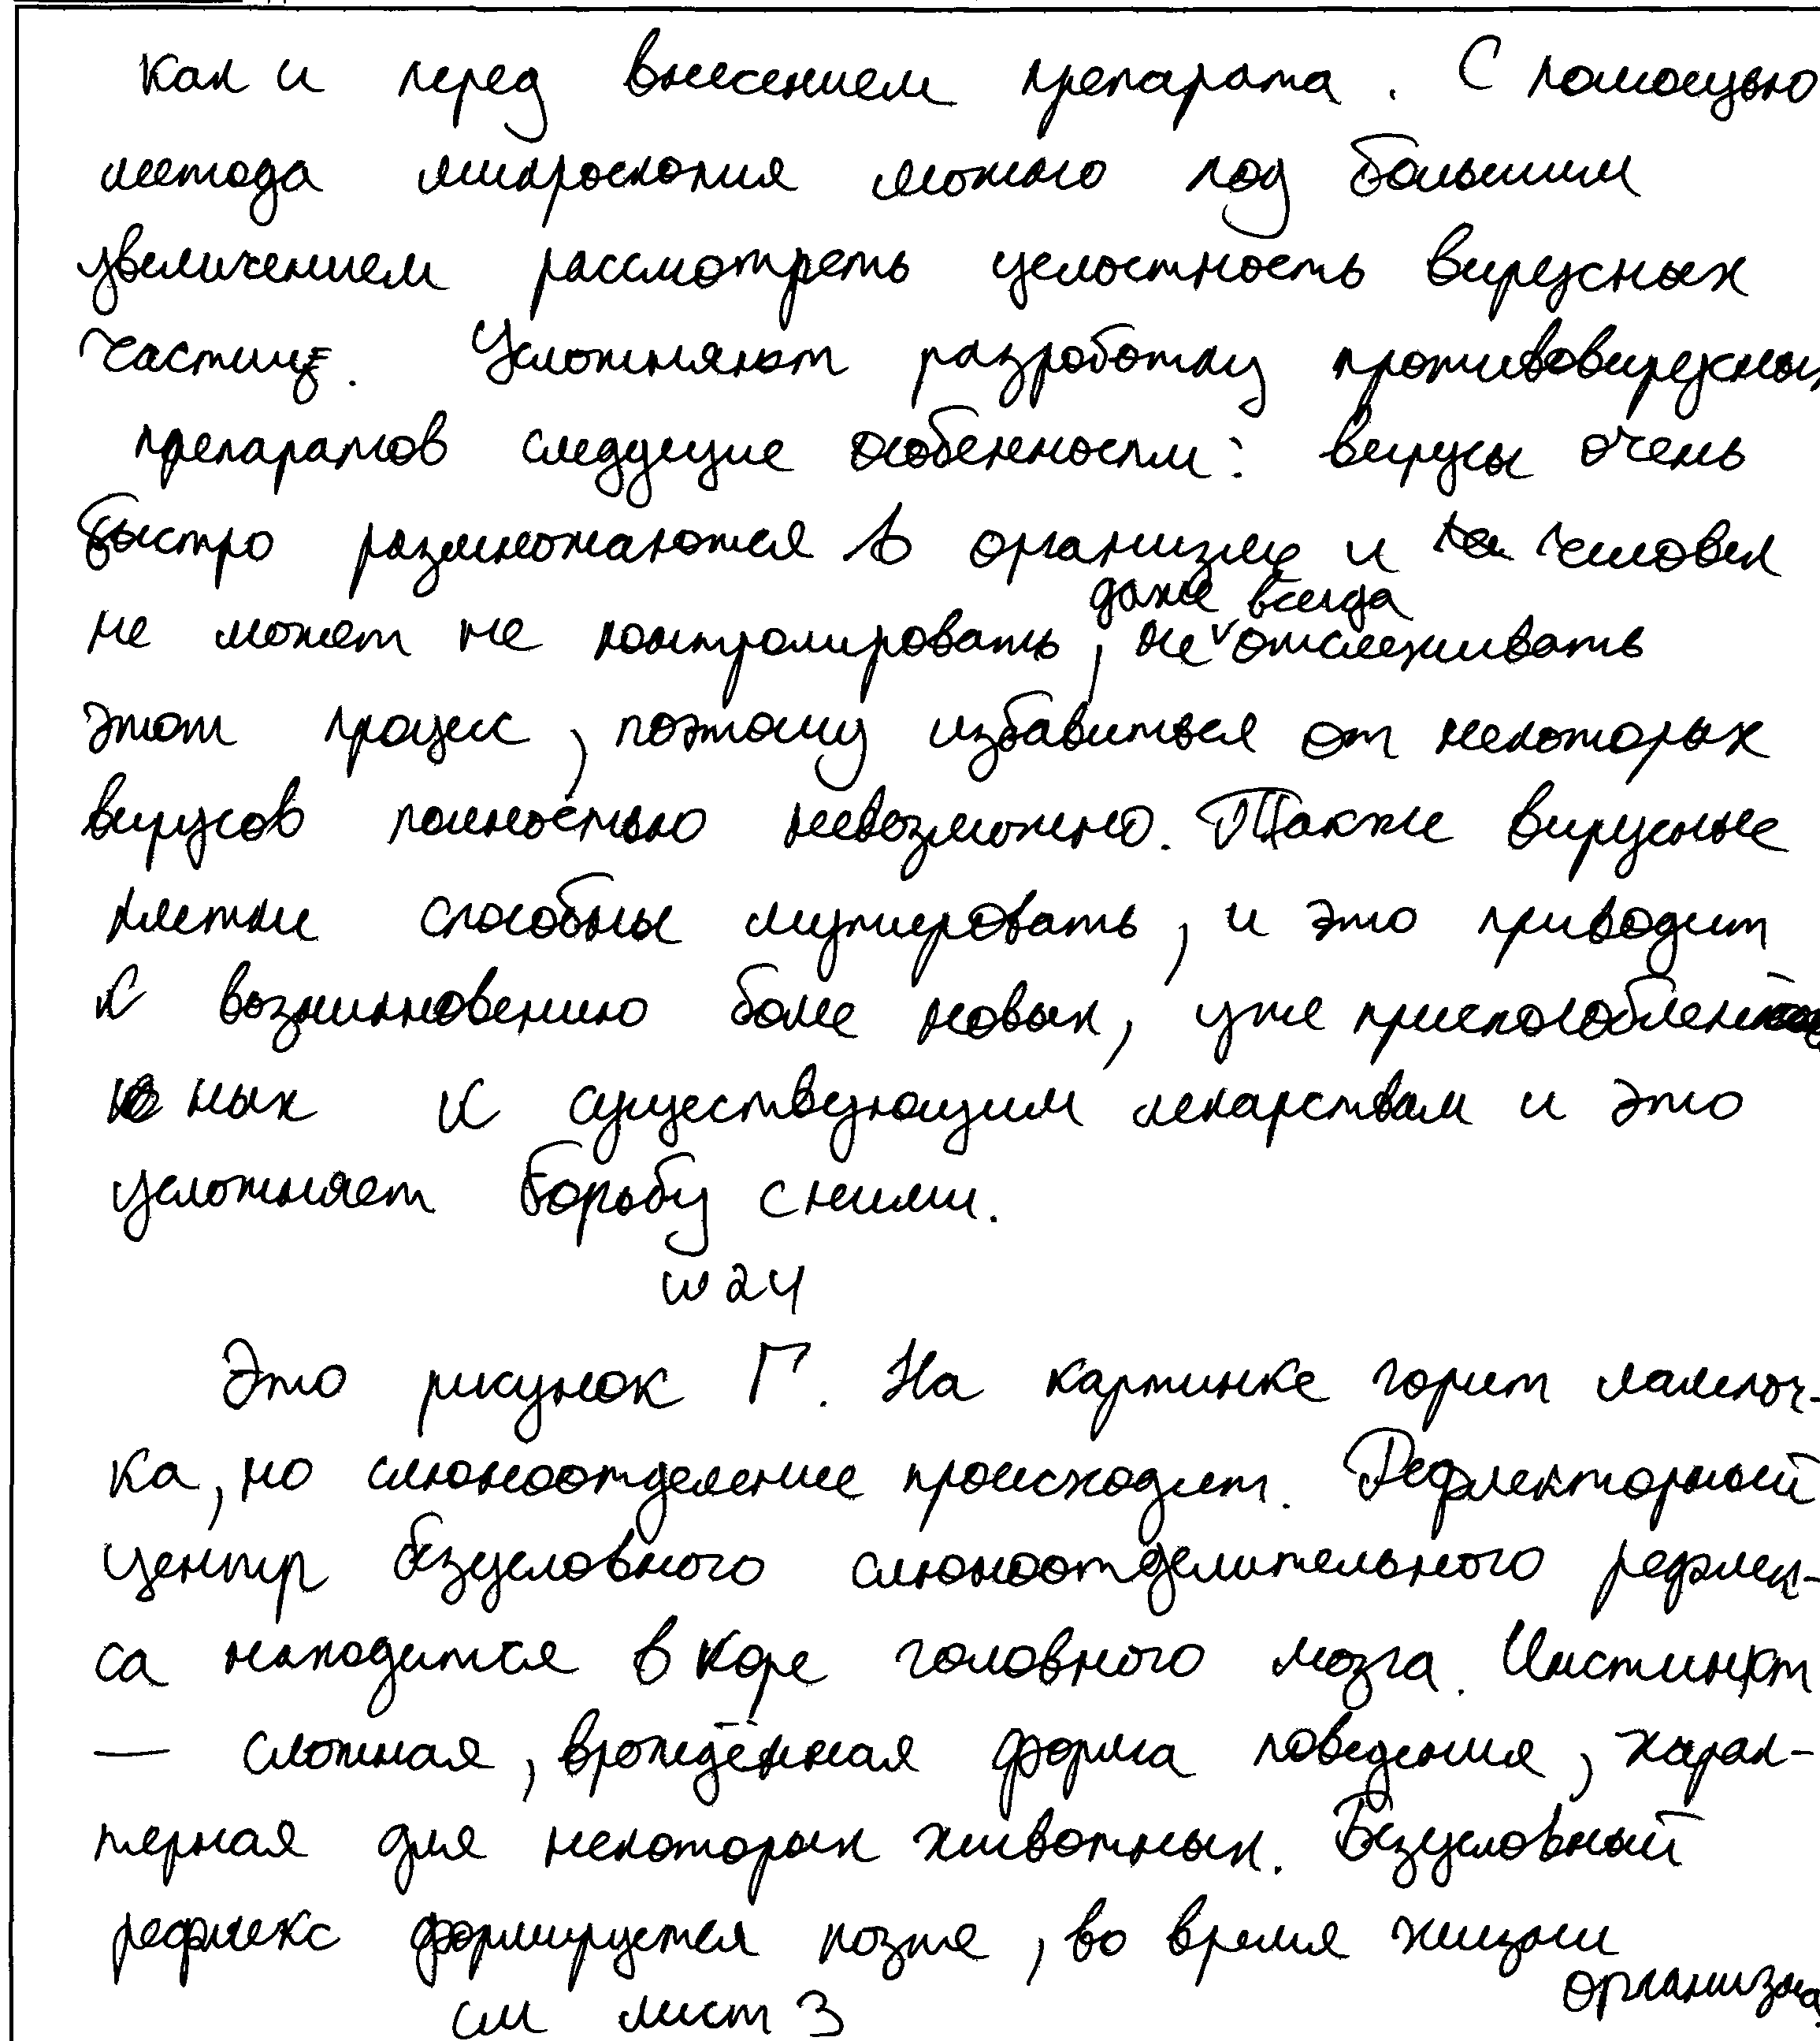 как и перед внесением препарата. С помощью
метода микроскопия можно под большим
увеличением рассмотреть целостность вирусных
частиц. Усложняют разработку противовирусных
препаратов следущие особенности: вирусы очень
быстро размножаются в организме и человек
не может не контролировать, даже не всегда отслеживать
этот процесс, поэтому избавиться от некоторых
вирусов полностью невозможно. Также вирусные
клетки способны мутировать, и это приводит
к возникновению более новых, уже приспособлен
ных к существующим лекарствам и это
усложняет борьбу с ними.
№24
Это рисунок Г. На картинке горит лампоч-
ка, но слюноотделение происходит. Рефлекторный
центр безусловного слюноотделительного рефлек-
са находится в коре головного мозга. Инстинкт
— сложная, врождённая форма поведения, харак-
терная для некоторых животных. Безусловный
рефлекс формируется позже, во время жизни
организма.
см лист 3